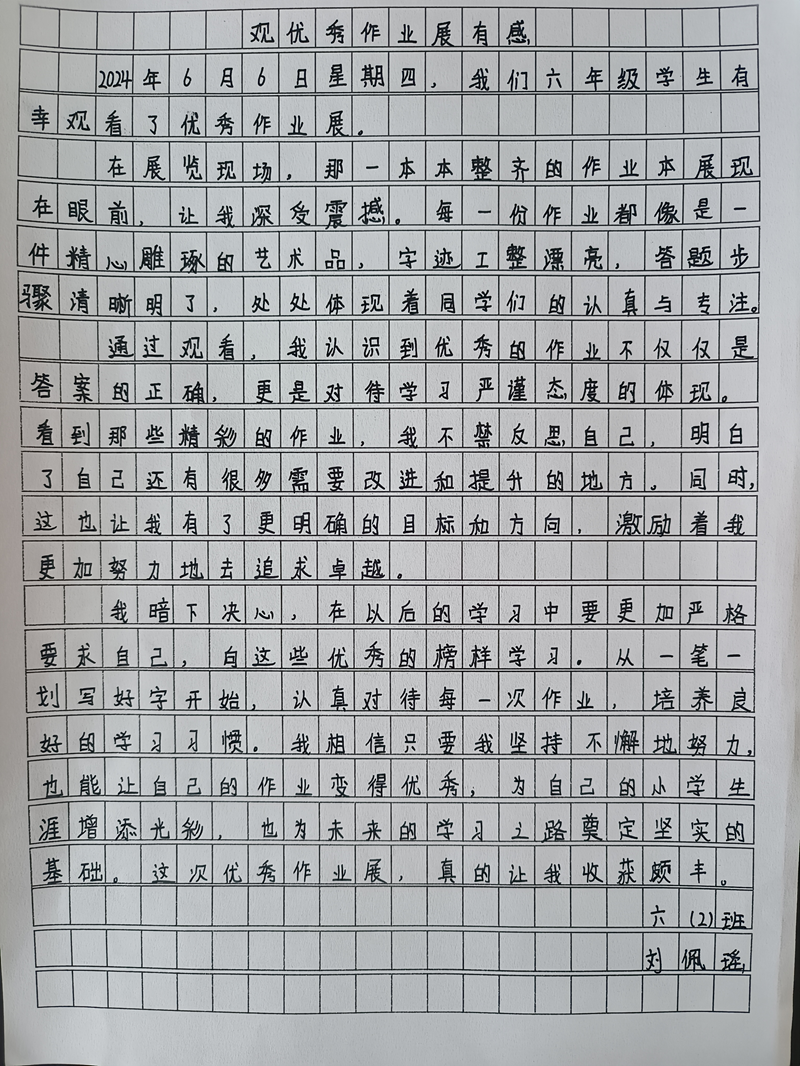 观优秀作业展有感
2024年6月6日星期四，我们六年级学生有
幸观看了优秀作业展。
在展览现场，那一本本整齐的作业本展现
在眼前，让我深受震撼。每一份作业都像是一
件精心雕琢的艺术品，字迹工整漂亮，答题步
骤清晰明了，处处体现着同学们的认真与专注。
通过观看，我认识到优秀的作业不仅仅是
答案的正确，更是对待学习严谨态度的体现。
看到那些精彩的作业，我不禁反思自己，明白
了自己还有很多需要改进和提升的地方。同时，
这也让我有了更明确的目标和方向，激励着我
更加努力地去追求卓越。
我暗下决心，在以后的学习中要更加严格
要求自己，向这些优秀的榜样学习。从一笔一
划写好字开始，认真对待每一次作业，培养良
好的学习习惯。我相信只要我坚持不懈地努力，
也能让自己的作业变得优秀，为自己的小学生
涯增添光彩，也为未来的学习之路奠定坚实的
基础。这次优秀作业展，真的让我收获颇丰。
六（2）班
刘佩瑶